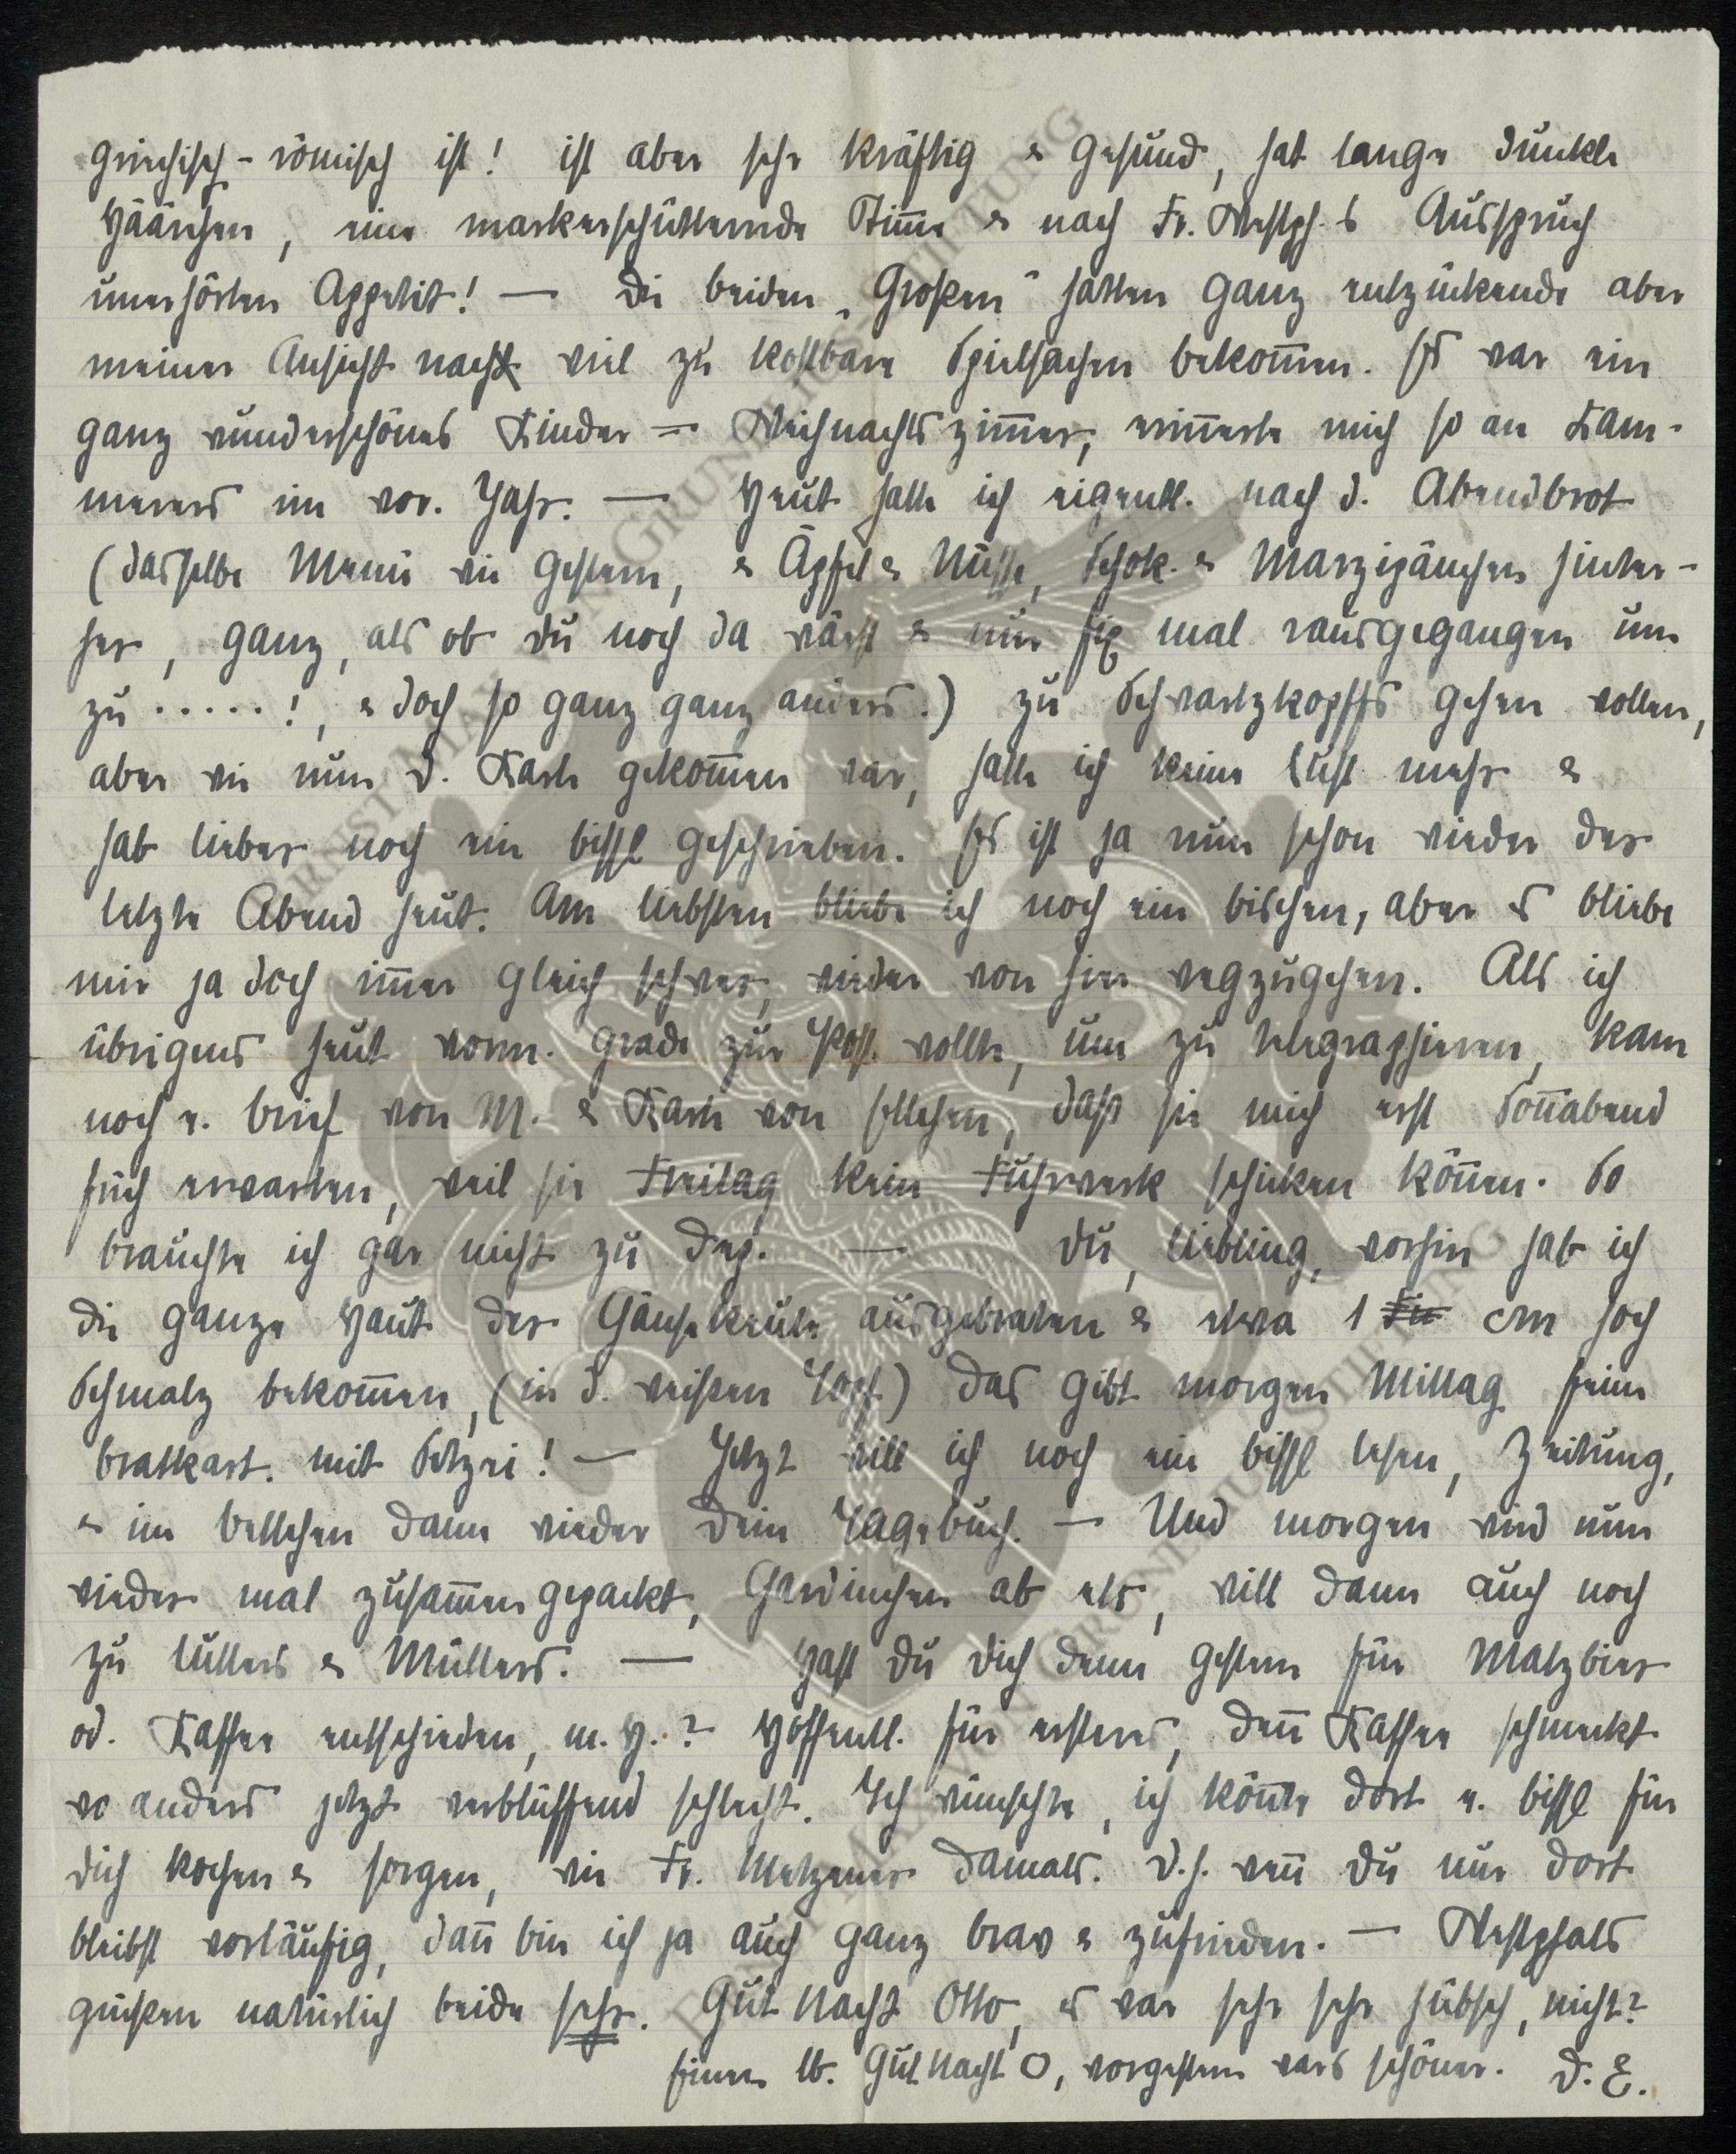 griechisch - römisch ist! ist aber sehr kräftig & gesund, hat lange dunkle
Häärchen, eine markerschütternde Stim̅e & nach Fr. Westph.s Ausspruch
unerhörten Appetit! — Die beiden „Großen“ hatten ganz entzückende aber
meiner Ansicht nach viel zu kostbare Spielsachen bekom̅en. Es war ein
ganz wunderschönes Kinder = Weihnachtszim̅er, erin̅erte mich so an Kam-
merers im vor. Jahr. — Heut hatte ich eigentl. nach d. Abendbrot
(dasselbe Menü wie gestern, & Äpfel & Nüsse, Schok. & Marzipänchen hinter-
her, ganz, als ob du noch da wärst & nur fix mal rausgegangen um
zu .....!, & doch so ganz ganz anders.) zu Schwartzkopffs gehen wollen,
aber wie nun d. Karte gekom̅en war, hatte ich keine Lust mehr &
hab lieber noch ein bissl geschrieben. Es ist ja nun schon wieder der
letzte Abend heut. Am liebsten bliebe ich noch ein bischen, aber es bliebe
mir ja doch im̅er gleich schwer, wieder von hier wegzugehen. Als ich
übrigens heut vorm. grade zur Post wollte, um zu telegraphieren, kam
noch e. Brief von M. & Karte von Ellchen, daß sie mich erst Son̅abend
früh erwarten, weil sie Freitag kein Fuhrwerk schicken kön̅en. So
brauchte ich gar nicht zu dep. — Du, Liebling, vorhin hab ich
die ganze Haut der Gänsekeule ausgebraten & etwa 1 cm hoch
Schmalz bekom̅en, (in d. weißen Topf.) Das gibt morgen Mittag feine
Bratkart. mit Setzei! — Jetzt will ich noch ein bissl lesen, Zeitung,
& im Bettchen dann wieder Dein Tagebuch. — Und morgen wird nun
wieder mal zusam̅engepackt, Gardinchen ab etc, will dann auch noch
zu Lüllers & Müllers. — Hast Du Dich denn gestern für Malzbier
od. Kaffee entschieden, m. H.? Hoffentl. für ersteres, den̅ Kaffee schmeckt
wo anders jetzt verblüffend schlecht. Ich wünschte, ich kön̅te dort e. bissl für
Dich kochen & sorgen, wie Fr. Metzener damals. D.h. wen̅ Du nur dort
bleibst vorläufig, dan̅ bin ich ja auch ganz brav & zufrieden. — Westphals
grüßen natürlich beide sehr. Gut Nacht Otto, es war sehr sehr hübsch, nicht?
Einen lb. Gut Nacht O, vorgestern wars schöner. D. E.
ERNST MALVIN GRUNEHLIUS-STIFTUNG
ERNST MALVIN GRUNEHLIUS-STIFTUNG